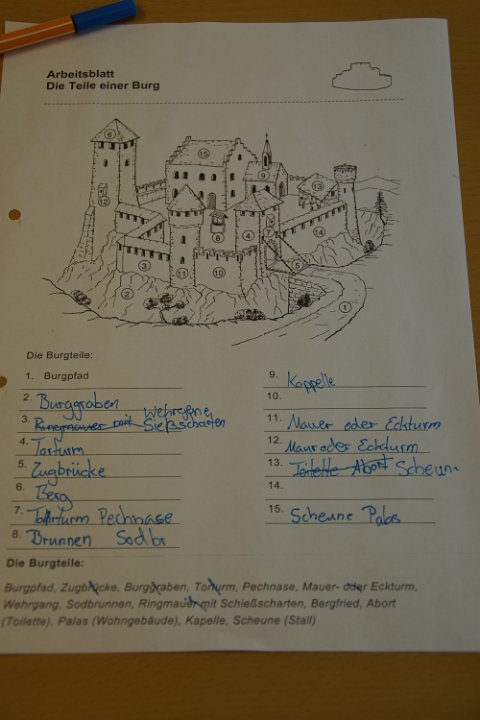 Arbeitsblatt
Die Teile einer Burg
6
15
9
13
12
8
4
7
14
3
11
10
5
2
1
Die Burgteile:
1. Burgpfad
2. Burggraben
3. Ringmauer mit Wehrgäne Sießscharten
4. Torturm
5. Zugbrücke
6. Berg
7. Torturm Pechnase
8. Brunnen Sodbr
9. Kappelle
10.
11. Mauer oder Eckturm
12. Maur oder Eckturm
13. Toilette Abort Scheun
14.
15. Scheune Palas
Die Burgteile:
Burgpfad, Zugbrücke, Burggraben, Torturm, Pechnase, Mauer- oder Eckturm,
Wehrgang, Sodbrunnen, Ringmauer mit Schießscharten, Bergfried, Abort
(Toilette), Palas (Wohngebäude), Kapelle, Scheune (Stall)